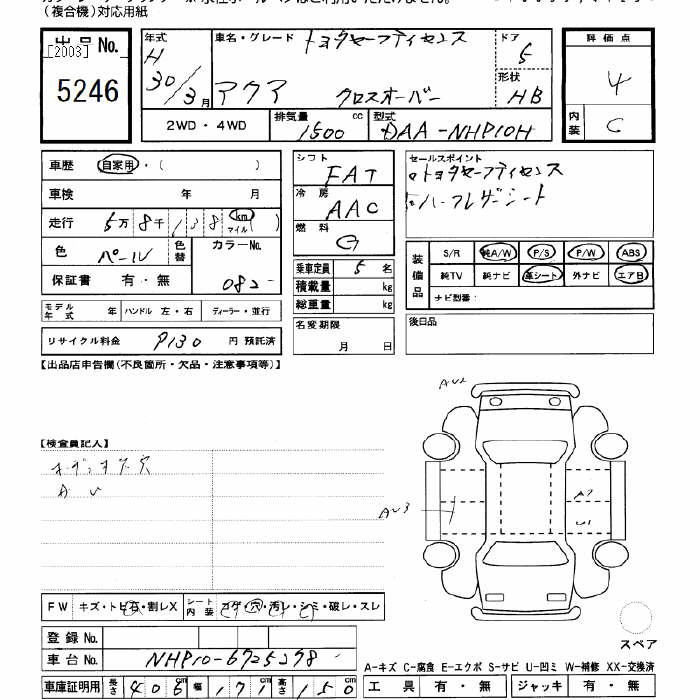 (複合機)対応用紙
出品No.
[2003]
5246
年式
H
30/3月
車名・グレード
トヨタセーフティセンス
アクア クロスオーバー
ドア
5
形状
HB
2WD・4WD
排気量
1500 cc
型式
DAA-NHP10H
評価点
4
内装
C
車歴 自家用・( )
車検 年 月
走行 5万8千138 km マイル
色 パール 色替 カラーNo. 082
保証書 有・無
モデル年式 年 ハンドル 左・右 ディーラー・並行
リサイクル料金 円 預託済
シフト
FAT
冷房
AAC
燃料
G
乗車定員 5名
積載量 kg
総重量 kg
名変期限
月 日
セールスポイント
トヨタセーフティセンス
ハーフレザーシート
装備品
S/R 純A/W P/S P/W ABS
純TV 純ナビ 革シート 外ナビ エアB
ナビ型番:
後日品
【出品店申告欄(不良箇所・欠品・注意事項等)】
【検査員記入】
AU2
AU3
A2
U1
FW キズ・トビ石・割レX シート内装 コゲ・穴・汚レ・シミ・破レ・スレ
登録No.
車台No. NHP10-6725278
車庫証明用 長さ 406cm 幅 171cm 高さ 150cm
スペア
A-キズ C-腐食 E-エクボ S-サビ U-凹ミ W-補修 XX-交換済
工具 有・無 ジャッキ 有・無